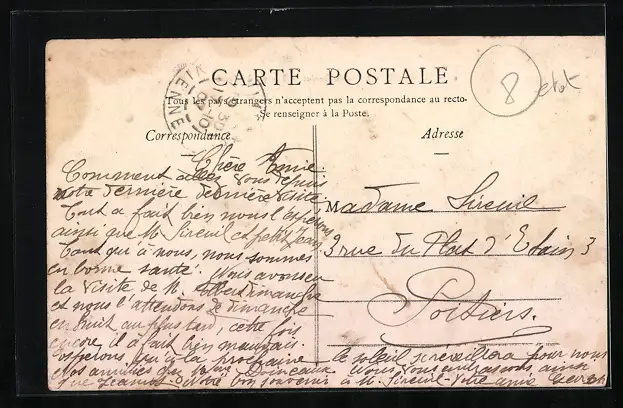 CARTE POSTALE
Tous les pays étrangers n'acceptent pas la correspondance au recto-
Se renseigner à la Poste.
Correspondance
Adresse
8
VIENNE
Chère Amie
Comment allez vous depuis
notre dernière dernière visite
Tout a fait bien nous l'espérons
ainsi que M. Sireuil et petit Jean
tant qu'à nous, nous sommes
en bonne santé. Nous avons eu
la visite de M. dimanche
et nous l'attendons dimanche
en huit au plus tard, cette fois
encore, il a fait bien mauvais.
Espérons qu'à la prochaine
le soleil se réveillera pour nous
Nos amitiés
Nous vous embrassons ainsi
que Jeannot
bon souvenir à M. Sireuil Votre amie
Madame Sireuil
3 rue du Plat d'Etain 3
Poitiers.